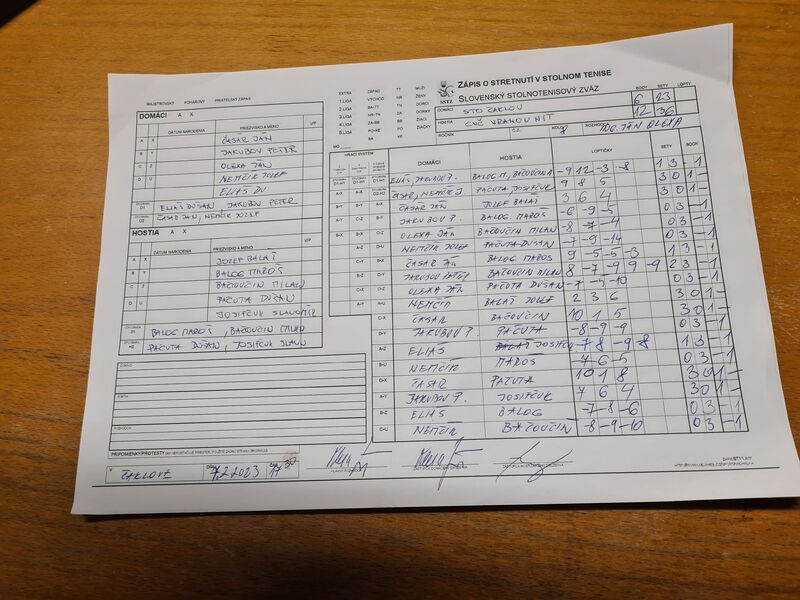 ZÁPIS O STRETNUTÍ V STOLNOM TENISE
SLOVENSKÝ STOLNOTENISOVÝ ZVÄZ
SSTZ
MAJSTROVSKÝ POHÁROVÝ PRIATEĽSKÝ ZÁPAS
EXTRA ZÁPAD TT MUŽI
1.LIGA VÝCHOD NR ŽENY
2.LIGA BA-TT TN DORCI
3.LIGA NR-TN ZA DORKY
4.LIGA ZA-BB BB ŽIACI
5.LIGA PO-KE PO ŽIAČKY
BA KE
BODY SETY LOPTY
DOMÁCI STO ČAKLOV 6 23
HOSTIA CVČ VRANOV N/T 12 36
ROČNÍK Č.Z. KOLO 8 ROZHODCA ING. JÁN OLEXA
DOMÁCI A X
DÁTUM NARODENIA PRIEZVISKO A MENO V/P
A X ČASAR JÁN
B Y JAKUBOV PETER
C Z OLEXA JÁN
D U NEMČÍK JOZEF
ELIAŠ DU
D1 ELIAŠ DUŠAN, JAKUBOV PETER
D2 ČASAR JÁN, NEMČÍK JOZEF
HOSTIA A X
DÁTUM NARODENIA PRIEZVISKO A MENO V/P
A X JOZEF BALÁŽ
B Y BALOG MAROŠ
C Z BAČOVČIN MILAN
D U PAČUTA DUŠAN
JOSIPČUK SLAVOMÍR
D1 BALOG MAROŠ, BAČOVČIN MILAN
H2 PAČUTA DUŠAN, JOSIPČUK SLAV
HRACÍ SYSTÉM DOMÁCI HOSTIA LOPTIČKY SETY BODY
ELIÁŠ, JAKUBOV P. BALOG M, BAČOVČIN M -9 12 -3 -8 1 3 - 1
ČASAR, NEMČÍK J. PAČUTA JOSIPČUK 9 8 5 3 0 1 -
ČASAR JÁN JOZEF BALÁŽ 3 6 4 3 0 1 -
JAKUBOV P. BALOG MAROŠ -6 -9 -5 0 3 - 1
OLEXA JÁN BAČOVČIN MILAN -8 -7 -4 0 3 - 1
NEMČÍK JOZEF PAČUTA DUŠAN -7 -9 -14 0 3 - 1
ČASAR JÁN BALOG MAROŠ 9 -5 -5 -3 1 3 - 1
JAKUBOV PETER BAČOVČIN MILAN 8 -7 -9 9 -9 2 3 - 1
OLEXA JÁN PAČUTA DUŠAN -7 -5 -10 0 3 - 1
NEMČÍK BALÁŽ JOZEF 2 3 6 3 0 1 -
C-X ČASAR BAČOVČIN 10 1 5 3 0 1 -
D-Y JAKUBOV P. PAČUTA -8 -9 -9 0 3 - 1
A-Z ELIAŠ JOSIPČUK -7 8 -9 -8 1 3 - 1
B-U NEMČÍK MAROŠ -7 -6 -5 0 3 - 1
D-X ČASAR PAČUTA 10 1 8 3 0 1 -
A-Y JAKUBOV P. JOSIPČUK 7 6 4 3 0 1 -
B-Z ELIAŠ BALOG -7 -8 -6 0 3 - 1
C-U NEMČÍK BAČOVČIN -8 -9 -10 0 3 - 1
DOMÁCI
HOSTIA
ROZHODCA
PRIPOMIENKY/PROTESTY
V ČAKLOVE DŇA 7.2.2023 17 30
HLAVNÝ ROZHODCA